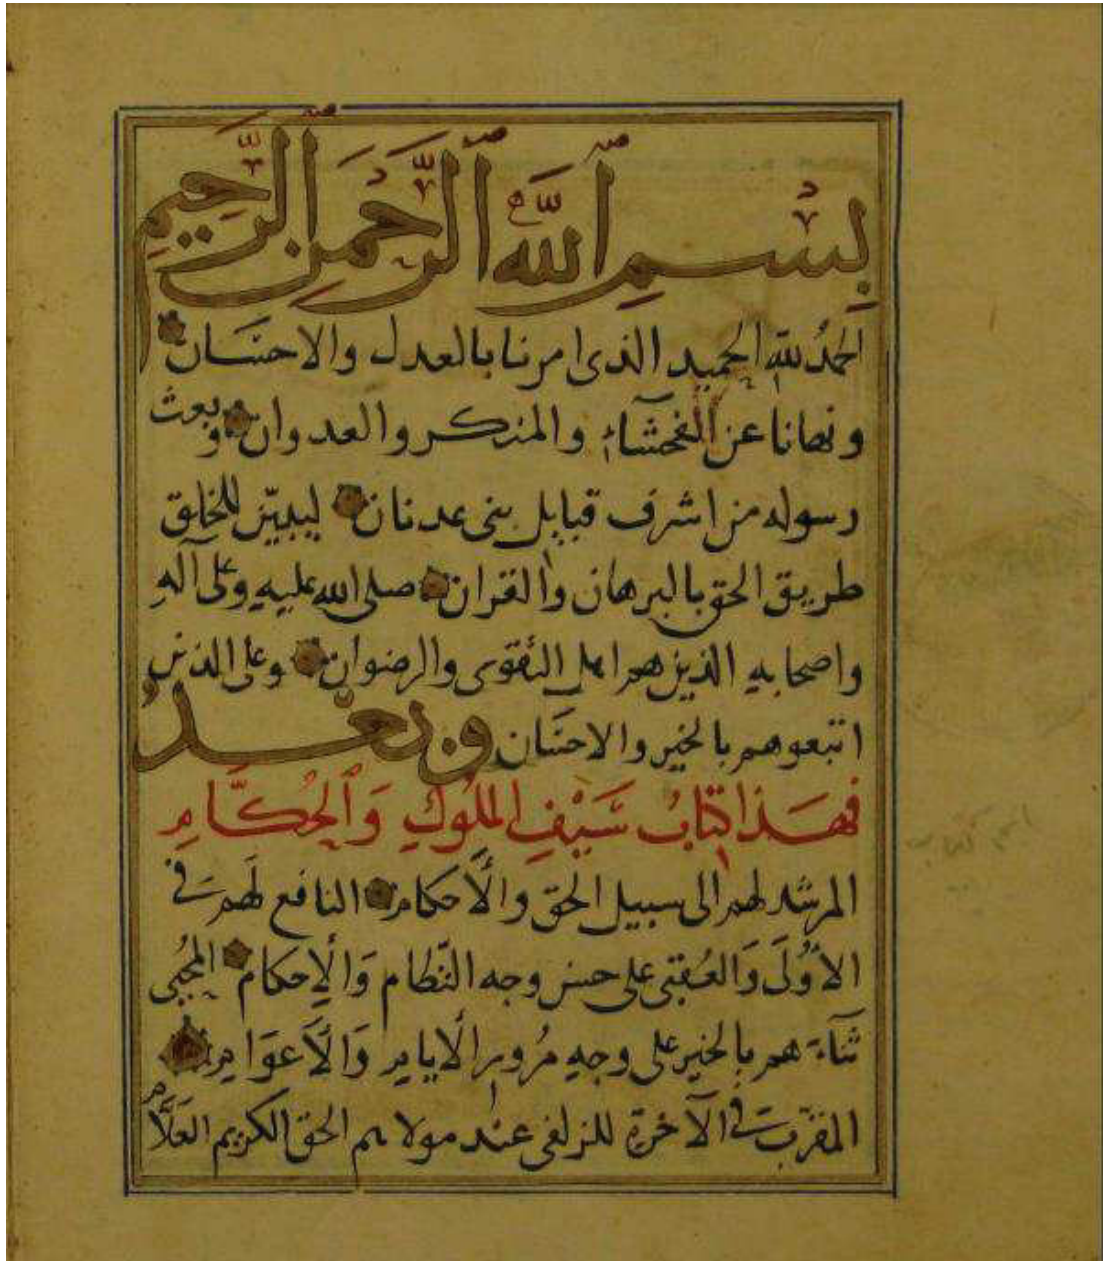 بِسْمِ اللّٰهِ الرَّحْمٰنِ الرَّحِيْمِ
الحمدُ للّٰه الحميد الذى امرنا بالعدل والاحسَان
ونهانا عن الفحشآء والمنكر والعدوان وبعث
رسوله من اشرف قبايل بنى عدنان ليبيّن للخلق
طريق الحق بالبرهان والقران صلى الله عليه وعلى آله
واصحابه الذين هم اهل التقوى والرضوان وعلى الذين
اتبعوهم بالخير والاحسَان وبعد
فهَذا كتابُ سَيْفِ الملُوكِ وَالحُكَّامِ
المرشد لهم الى سبيل الحق والأحكام النافع لهم فى
الأولَى وَالعُقبى على حسن وجه النّظام وَالإحكام المُحيى
ثنآءهم بالخير على وجهِ مُرورِ الأيام وَالأعوَام
المقرّب فى الآخرة للزلفى عند مولاهم الحق الكريم العَلَّام
اسم كتاب